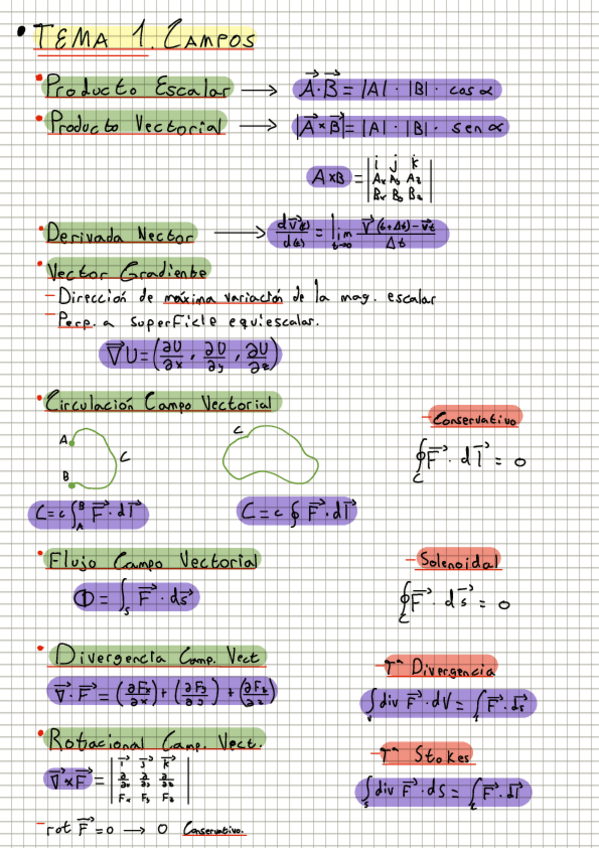 • TEMA 1. CAMPOS
• Producto Escalar → A⃗·B⃗ = |A|·|B|·cos α
• Producto Vectorial → |A⃗×B⃗| = |A|·|B|·sen α
A×B = | i j k |
| Ax Ay Az |
| Bx By Bz |
• Derivada Nector → dv⃗(t)/d(t) = lim t→0 v⃗(t+Δt)-v⃗t / Δt
• Vector Gradiente
- Dirección de máxima variación de la mag. escalar
- Perp. a superficie equiescalar.
∇⃗U = (∂U/∂x, ∂U/∂y, ∂U/∂z)
• Circulación Campo Vectorial
- Conservativo
A
C
B
C
∮c F⃗·dl⃗ = 0
C = c∫ᴬᴮ F⃗·dl⃗
C = c∮ F⃗·dl⃗
• Flujo Campo Vectorial
- Solenoidal
Φ = ∫s F⃗·ds⃗
∮c F⃗·ds⃗ = 0
• Divergencia Camp. Vect
- Tᵐᵃ Divergencia
∇⃗·F⃗ = (∂Fx/∂x) + (∂Fy/∂y) + (∂Fz/∂z)
∫v div F⃗·dV = ∫ F⃗·ds⃗
• Rotacional Camp. Vect.
- Tᵐᵃ Stokes
∇⃗×F⃗ = | i⃗ j⃗ k⃗ |
| ∂/∂x ∂/∂y ∂/∂z |
| Fx Fy Fz |
∫s div F⃗·dS = ∫c F⃗·dl⃗
- rot F⃗ = 0 → 0 Conservativo.